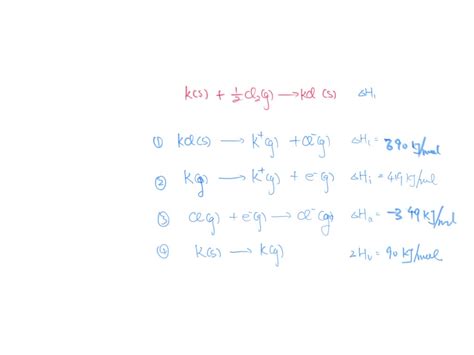 K(s) + 1/2 Cl₂(g) ⟶ KCl (s) ΔH₁
① KCl(s) ⟶ K⁺(g) + Cl⁻(g) ΔH₁ = 390 kJ/mol
② K(g) ⟶ K⁺(g) + e⁻(g) ΔHᵢ = 419 kJ/mol
③ Cl(g) + e⁻(g) ⟶ Cl⁻(g) ΔHₐ = -349 kJ/mol
④ K(s) ⟶ K(g) ΔHᵥ = 90 kJ/mol